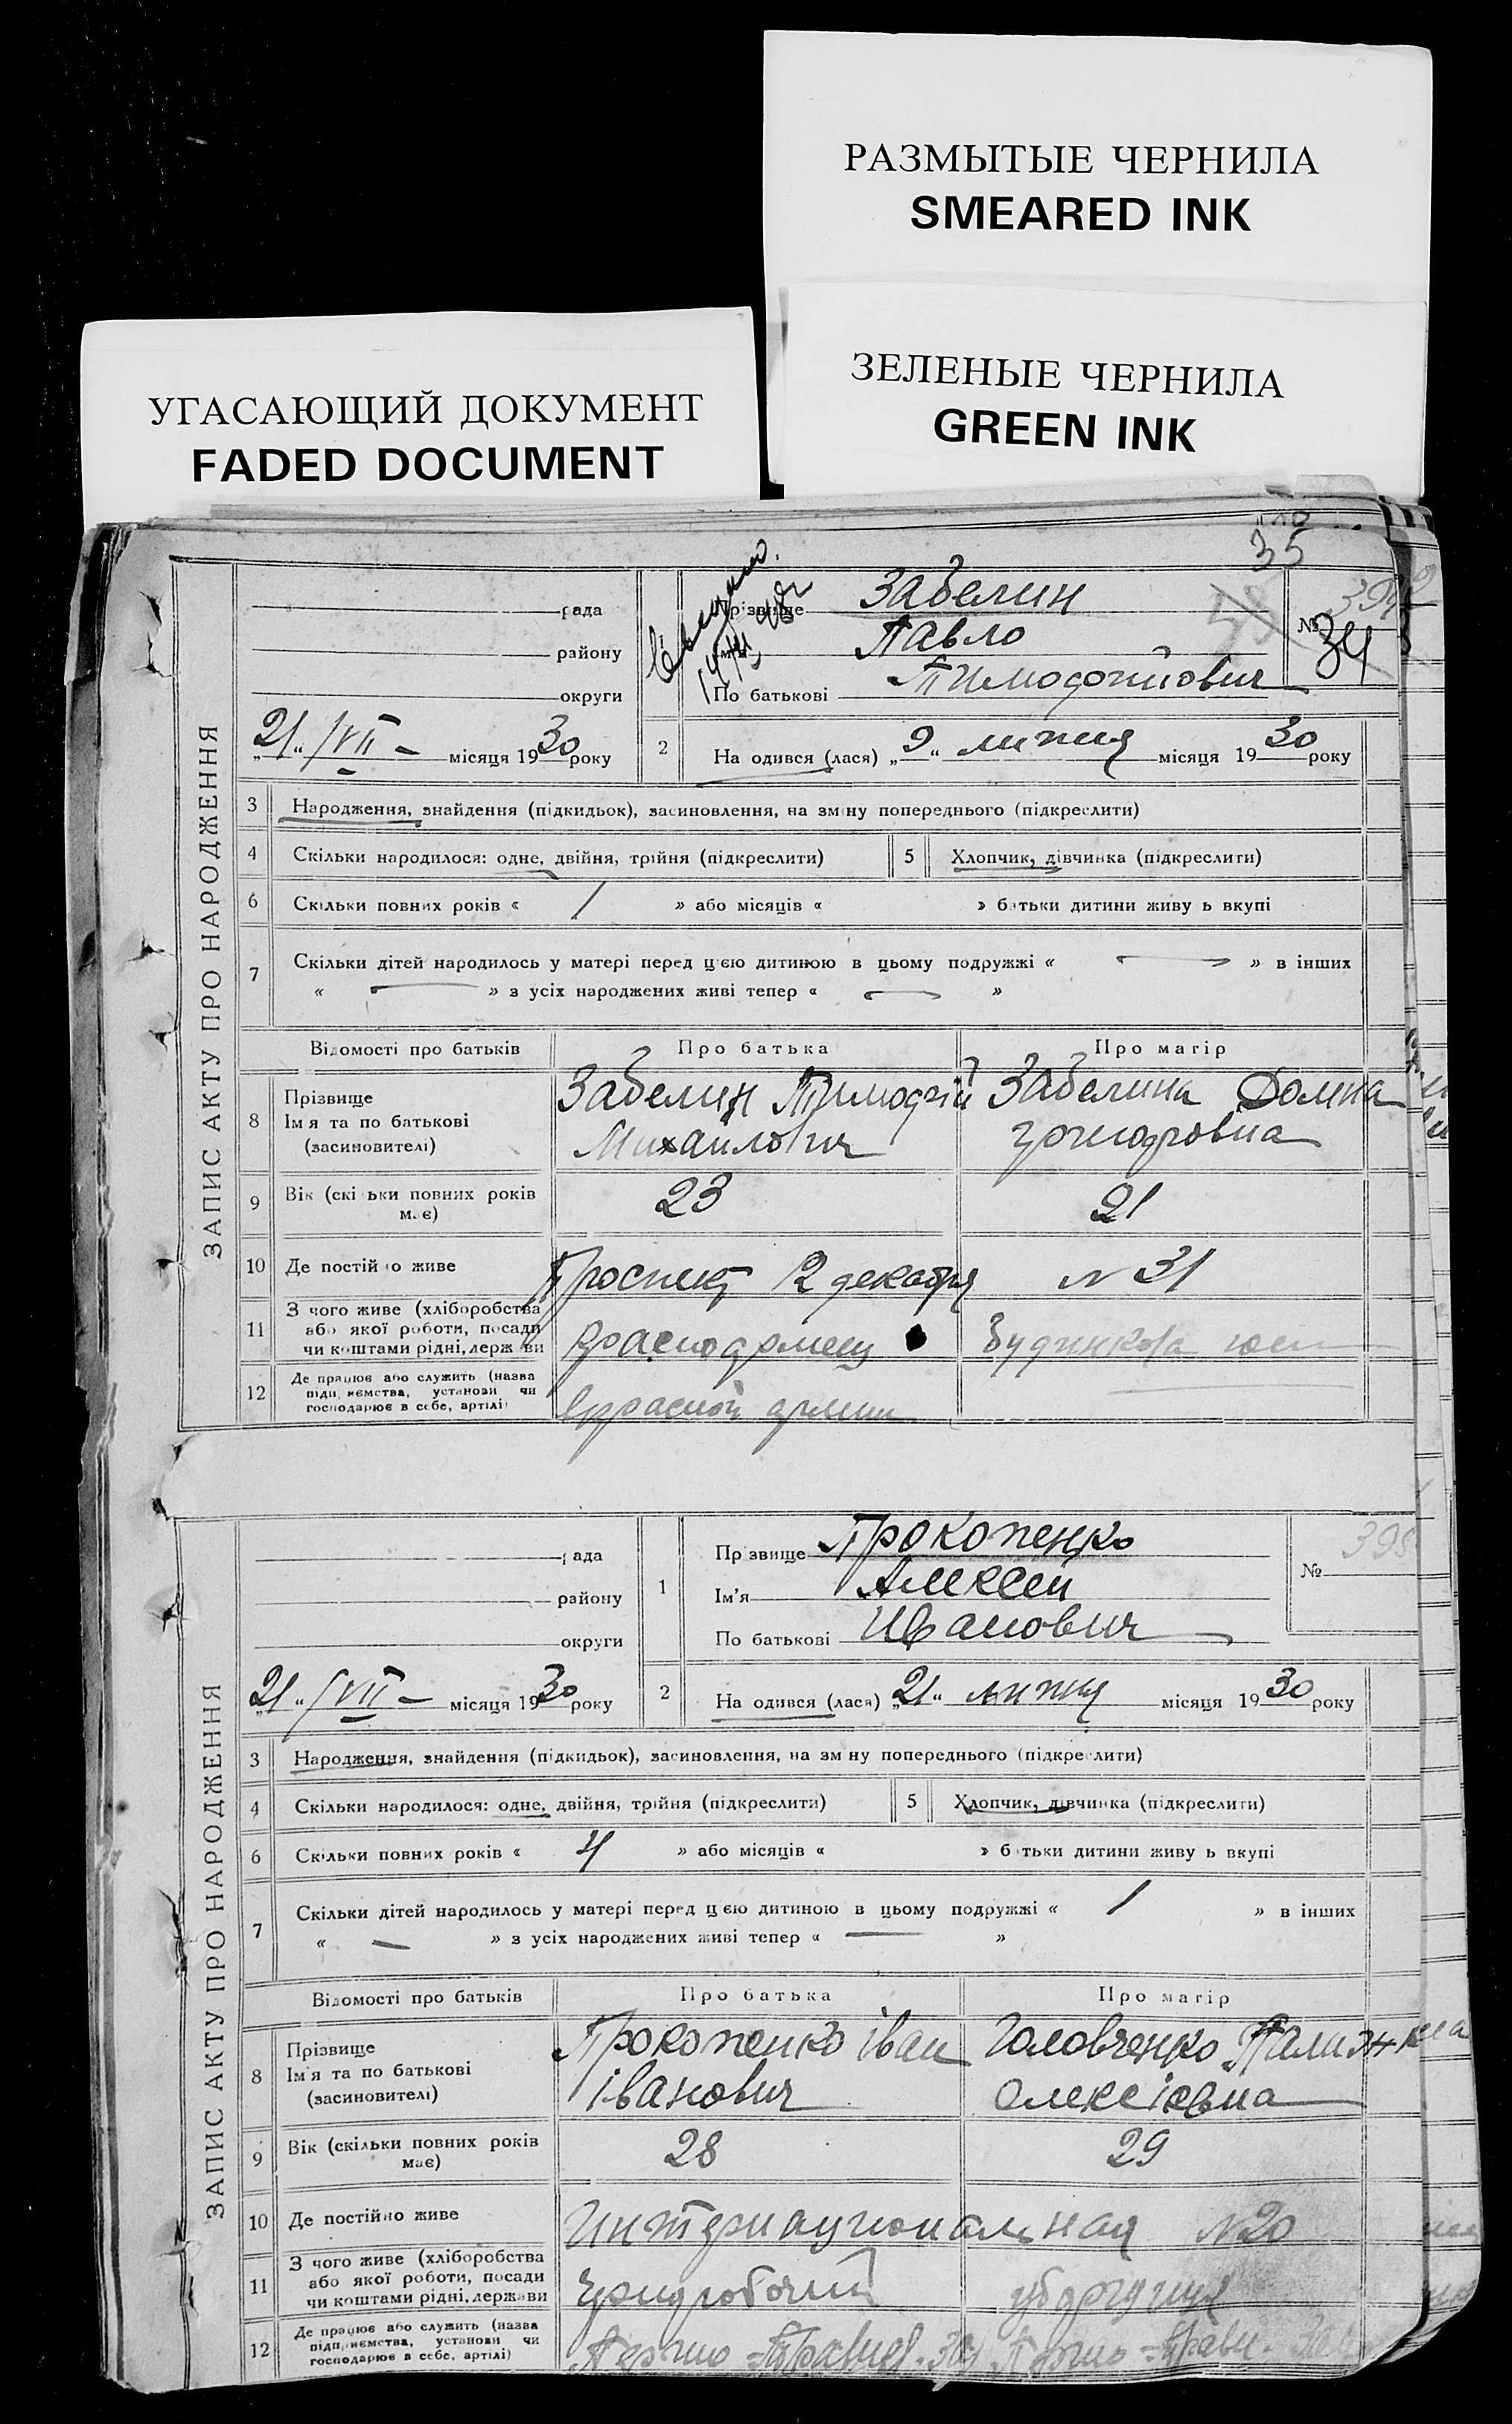 РАЗМЫТЫЕ ЧЕРНИЛА
SMEARED INK
ЗЕЛЕНЫЕ ЧЕРНИЛА
GREEN INK
УГАСАЮЩИЙ ДОКУМЕНТ
FADED DOCUMENT
35
ЗАПИС АКТУ ПРО НАРОДЖЕННЯ
рада
району
округи
„21“ /VII – місяця 1930 року
Прізвище Забелин
Павло
По батькові Тимофійович
№ 34
2 На одився (лася) „9“ липня місяця 1930 року
3 Народження, знайдення (підкидьок), засиновлення, на зміну попереднього (підкреслити)
4 Скільки народилося: одне, двійня, трійня (підкреслити) 5 Хлопчик, дівчинка (підкреслити)
6 Скільки повних років « 1 » або місяців « » батьки дитини живу ь вкупі
7 Скільки дітей народилось у матері перед цією дитиною в цьому подружжі « — » в інших
« — » з усіх народжених живі тепер « — »
Відомості про батьків Про батька Про матір
8 Прізвище Ім'я та по батькові (засиновителі)
Забелин Тимофій Михайлович
Забелина Домна
9 Вік (скі ьки повних років має) 23 21
10 Де постійно живе Проспект 12 декабря N 31
11 З чого живе (хліборобства або якої роботи, посади чи коштами рідні, держави
Красноармеец
12 Де працює або служить (назва підприємства, установи чи господарює в себе, артілі)
Красной армии
ЗАПИС АКТУ ПРО НАРОДЖЕННЯ
рада
району
округи
„21“ /VII – місяця 1930 року
1 Прізвище Прокопенко
Ім'я Алексей
По батькові Иванович
№ 398
2 На одився (лася) „21“ липня місяця 1930 року
3 Народження, знайдення (підкидьок), засиновлення, на зміну попереднього (підкреслити)
4 Скільки народилося: одне, двійня, трійня (підкреслити) 5 Хлопчик, дівчинка (підкреслити)
6 Скільки повних років « 4 » або місяців « » батьки дитини живу ь вкупі
7 Скільки дітей народилось у матері перед цією дитиною в цьому подружжі « 1 » в інших
« — » з усіх народжених живі тепер « — »
Відомості про батьків Про батька Про матір
8 Прізвище Ім'я та по батькові (засиновителі)
Прокопенко Іван Іванович
Головченко Олексіевна
9 Вік (скільки повних років має) 28 29
10 Де постійно живе Интернациональная N 20
11 З чого живе (хліборобства або якої роботи, посади чи коштами рідні, держави
12 Де працює або служить (назва підприємства, установи чи господарює в себе, артілі)